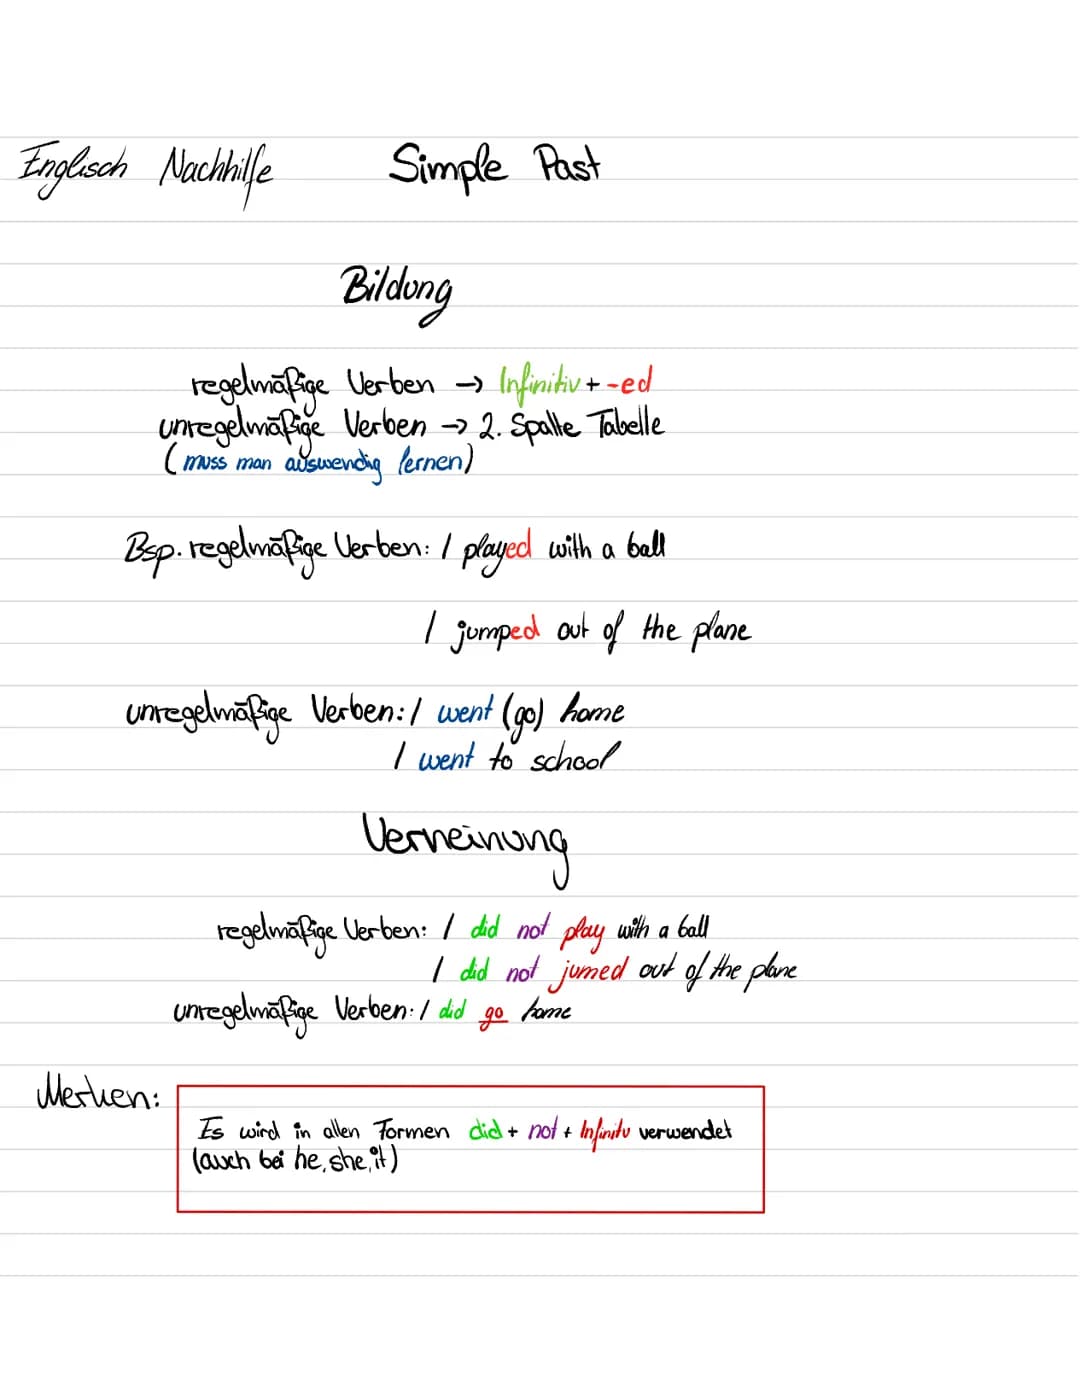 Englisch Nachhilfe Simple Past
Bildung
regelmäßige Verben → Infinitiv + -ed
unregelmäßige Verben → 2. Spalte Tabelle
(muss man auswendig lernen)
Bsp. regelmäßige Verben: I played with a ball
I jumped out of the plane
unregelmäßige Verben: I went (go) home
I went to school
Verneinung
regelmäßige Verben: I did not play with a ball
I did not jumed out of the plane
unregelmäßige Verben: I did go home
Merken:
Es wird in allen Formen did + not + Infinitv verwendet
(auch bei he, she, it)